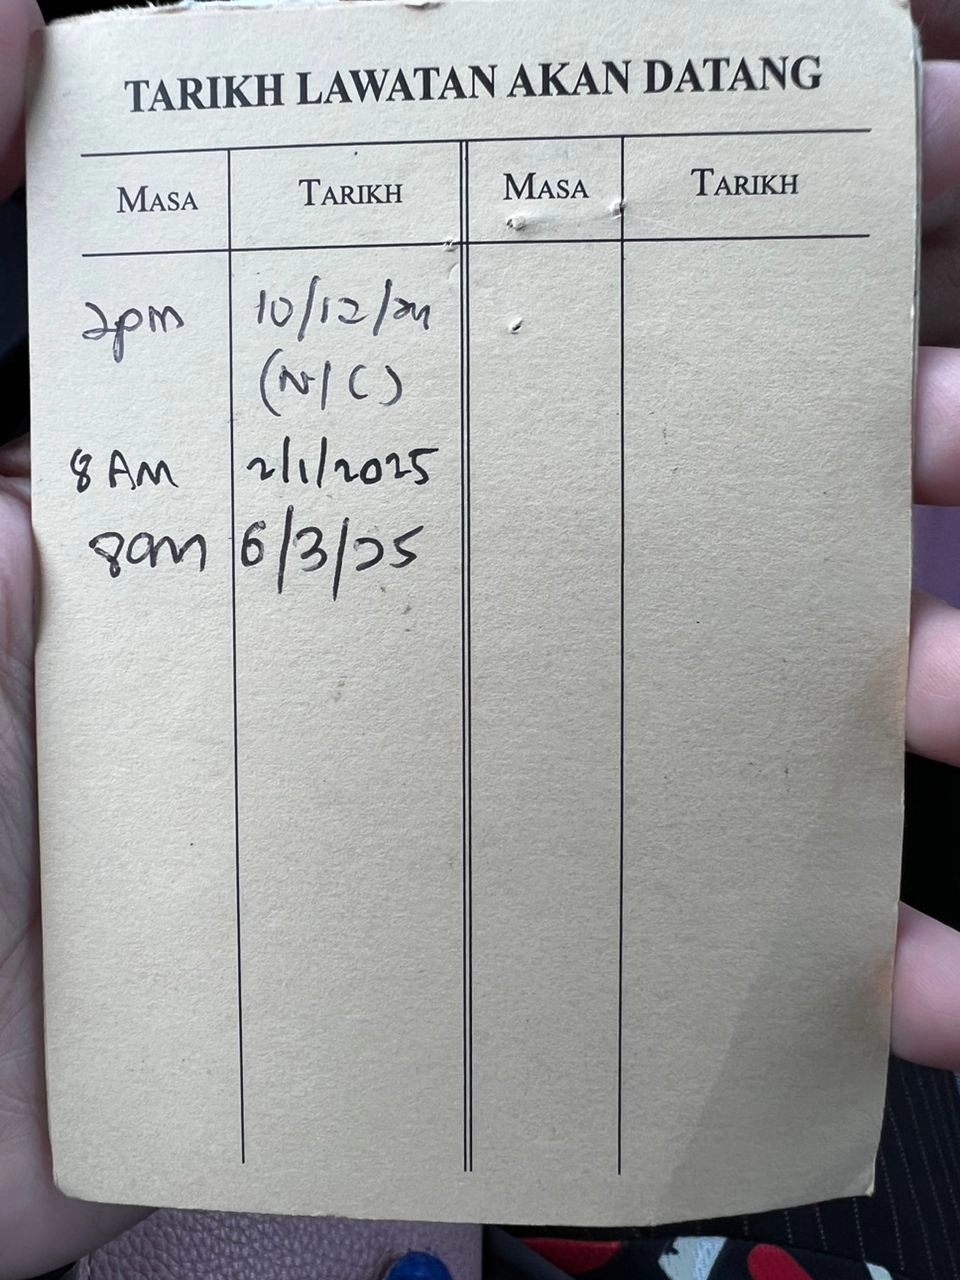 TARIKH LAWATAN AKAN DATANG
MASA TARIKH MASA TARIKH
2pm 10/12/24
(N/C)
8 AM 2/1/2025
8am 6/3/25